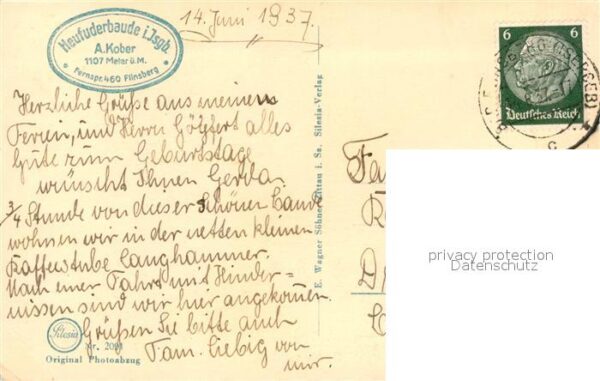 Heufuderbaude i. Jsgb.
A. Kober
1107 Meter ü. M.
Fernspr. 460 Flinsberg
14. Juni 1937.
6 6
Deutsches Reich
Herzliche Grüße aus meinen
Ferien, und Herrn alles
Gute zum Geburtstage
wünscht Ihnen Gerda.
3/4 Stunde von dieser schönen Baude
wohnen wir in der netten kleinen
Kaffeestube Langhammer.
Nach einer Fahrt mit Hinder=
nissen sind wir hier angekommen.
Grüßen Sie bitte auch
Fam. Liebig von
mir.
E. Wagner Söhne, Zittau i. Sa. Silesia-Verlag
Silesia
Nr.
Original Photoabzug
privacy protection
Datenschutz